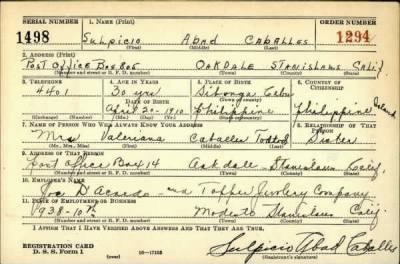 SERIAL NUMBER 1. NAME (Print) ORDER NUMBER
1498 Sulpicio Abad Caballes 1294
(First) (Middle) (Last)
2. ADDRESS (Print)
Post Office Box 806 OAKDALE STANISLAUS Calif
(Number and street or R. F. D. number) (Town) (County) (State)
3. TELEPHONE 4. AGE IN YEARS 5. PLACE OF BIRTH 6. COUNTRY OF CITIZENSHIP
4401 30 yrs Sibonga Cebu
DATE OF BIRTH (Town or county)
April 20-1910 Philippine Philippine Island
(Exchange) (Number) (Mo.) (Day) (Yr.) (State or country)
7. NAME OF PERSON WHO WILL ALWAYS KNOW YOUR ADDRESS 8. RELATIONSHIP OF THAT PERSON
Mrs Valeriana Caballes Sister
(Mr., Mrs., Miss) (First) (Middle) (Last)
9. ADDRESS OF THAT PERSON
Post Office Box 14 Oakdale Stanislaus Calif.
(Number and street or R. F. D. number) (Town) (County) (State)
10. EMPLOYER'S NAME
Joe Topper Jewlery Company
11. PLACE OF EMPLOYMENT OR BUSINESS
938-10th Modesto Stanislaus Calif
(Number and street or R. F. D. number) (Town) (County) (State)
I AFFIRM THAT I HAVE VERIFIED ABOVE ANSWERS AND THAT THEY ARE TRUE.
REGISTRATION CARD
D. S. S. Form 1 16-17105 Sulpicio Abad Caballes
(over) (Registrant's signature)